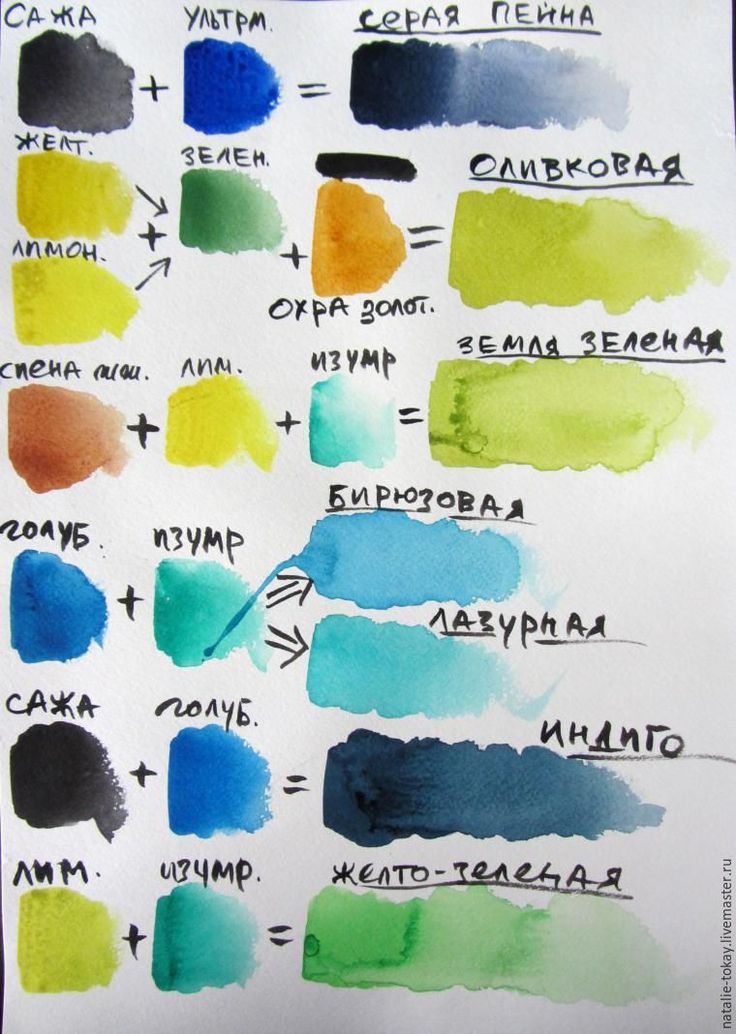 САЖА УЛЬТРМ. СЕРАЯ ПЕЙНА
+ =
ЖЕЛТ. ЗЕЛЕН. ОЛИВКОВАЯ
+
ЛИМОН. + =
ОХРА ЗОЛОТ.
СИЕНА ЛИМ. ИЗУМР ЗЕМЛЯ ЗЕЛЕНАЯ
+ + =
ГОЛУБ. ИЗУМР БИРЮЗОВАЯ
+
ЛАЗУРНАЯ
САЖА ГОЛУБ. ИНДИГО
+ =
ЛИМ. ИЗУМР. ЖЕЛТО-ЗЕЛЕНАЯ
+ =
natalie-tokay.livemaster.ru